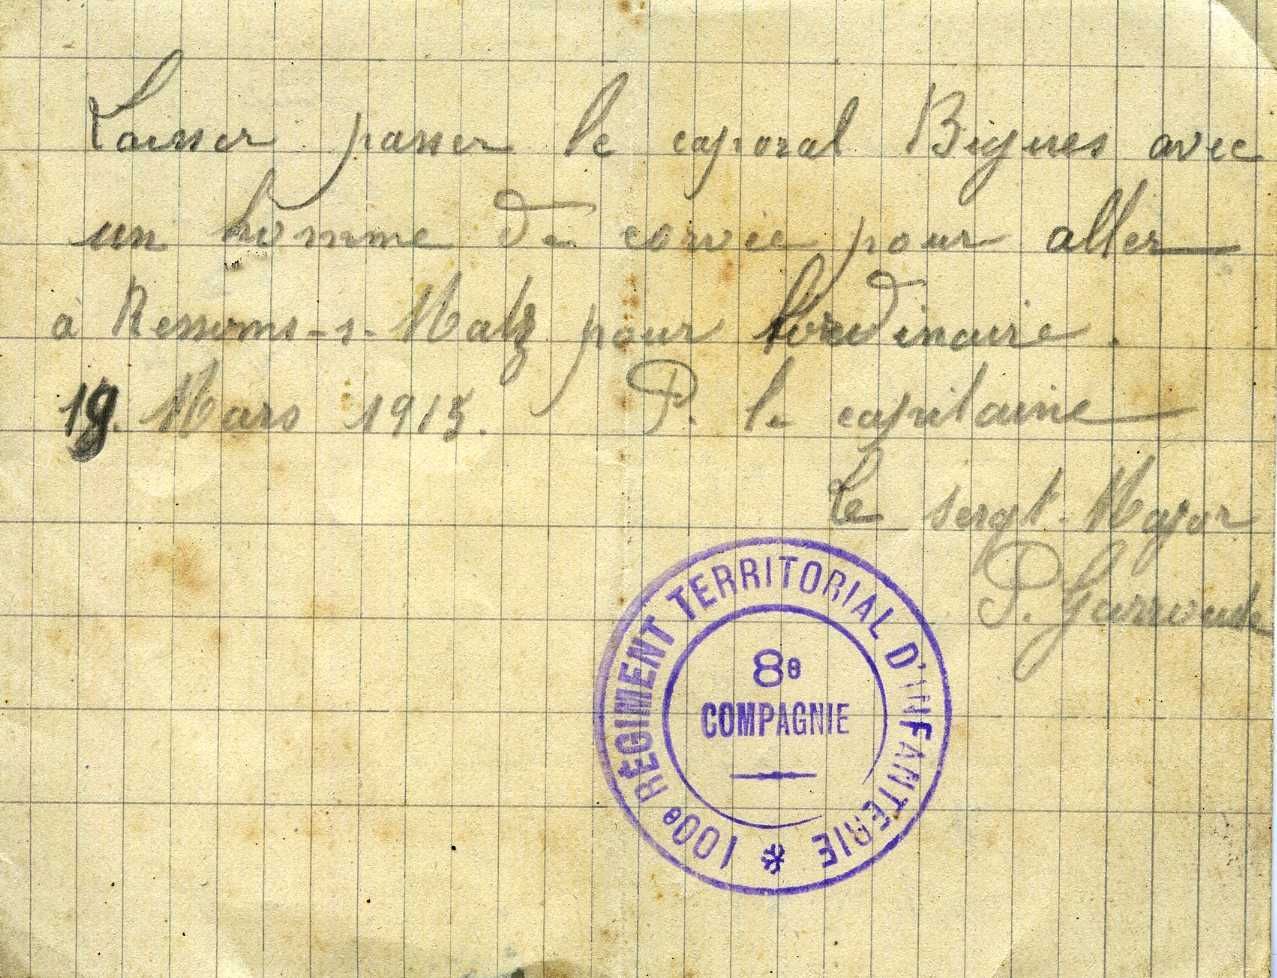 Laisser passer le caporal Bigues avec
un homme de corvée pour aller
à Ressons-s-Matz pour l'ordinaire.
19. Mars 1915. P. le capitaine
Le sergt-Major
P.
100e RÉGIMENT TERRITORIAL D'INFANTERIE *
8e
COMPAGNIE